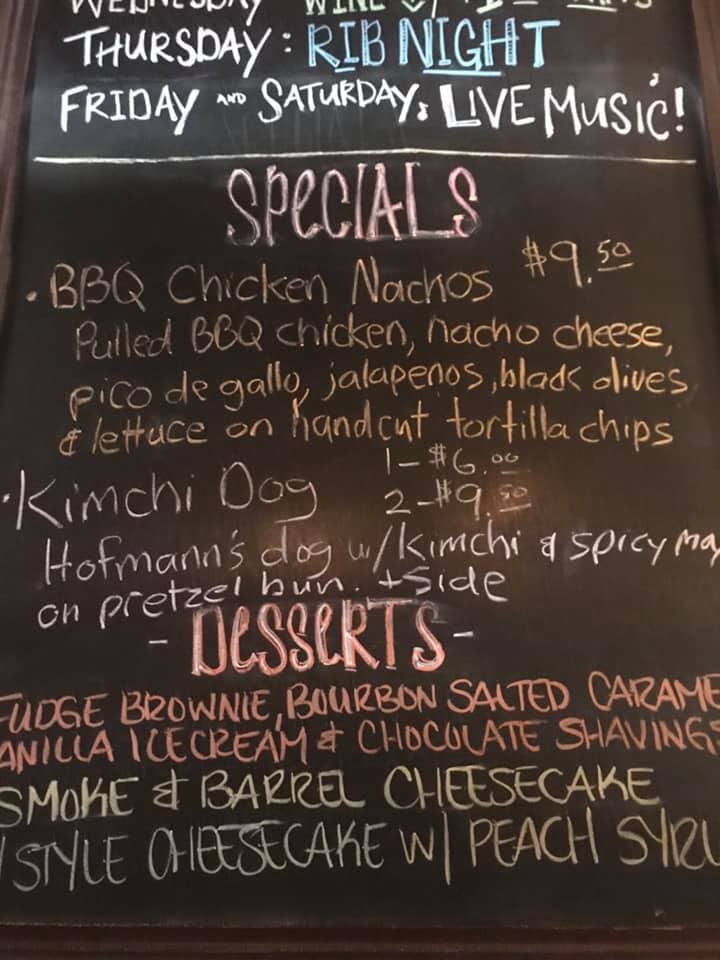 WEDNESDAY WINE
THURSDAY: RIB NIGHT
FRIDAY AND SATURDAY: LIVE MUSIC!
SPECIALS
· BBQ Chicken Nachos $9.50
Pulled BBQ chicken, nacho cheese,
pico de gallo, jalapenos, black olives
& lettuce on handcut tortilla chips
1-$6.00
· Kimchi Dog 2-$9.50
Hofmann's dog w/ kimchi & spicy may
on pretzel bun. + side
- DESSERTS -
FUDGE BROWNIE, BOURBON SALTED CARAME
ANILLA ICE CREAM & CHOCOLATE SHAVINGS
SMOKE & BARREL CHEESECAKE
STYLE CHEESECAKE W/ PEACH SYRU